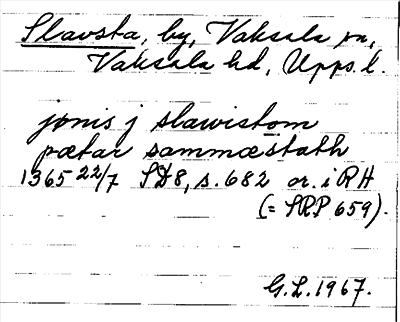 Slavsta, by, Vaksala sn,
Vaksala hd, Upps. l.
jönis j slawistom
pætar sammæstath
1365 22/7 SD8, s. 682 or. i RH
(= SRP 659).
G.L. 1967.